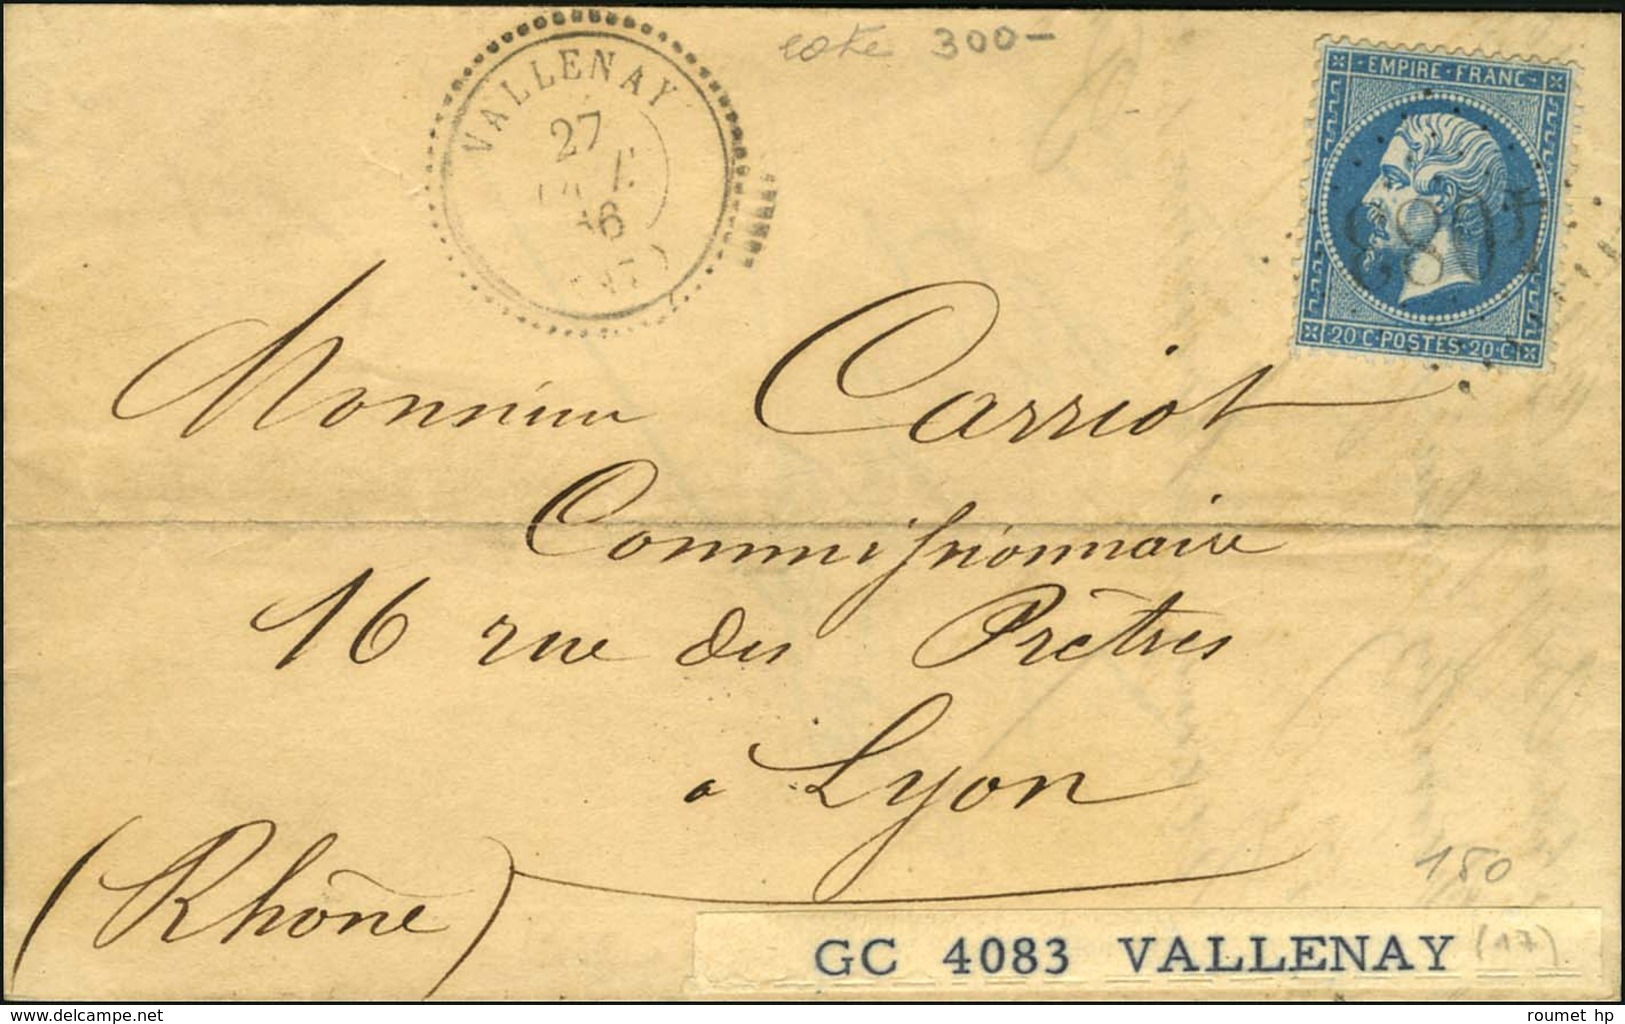 cote 300-
VALLENAY
27
66
(17)
EMPIRE FRANC
4083
20 C POSTES 20 C
Monsieur Carriot
Commissionnaire
16 rue des Prêtres
à Lyon
(Rhône)
150
GC 4083 VALLENAY (17)
roumet hp